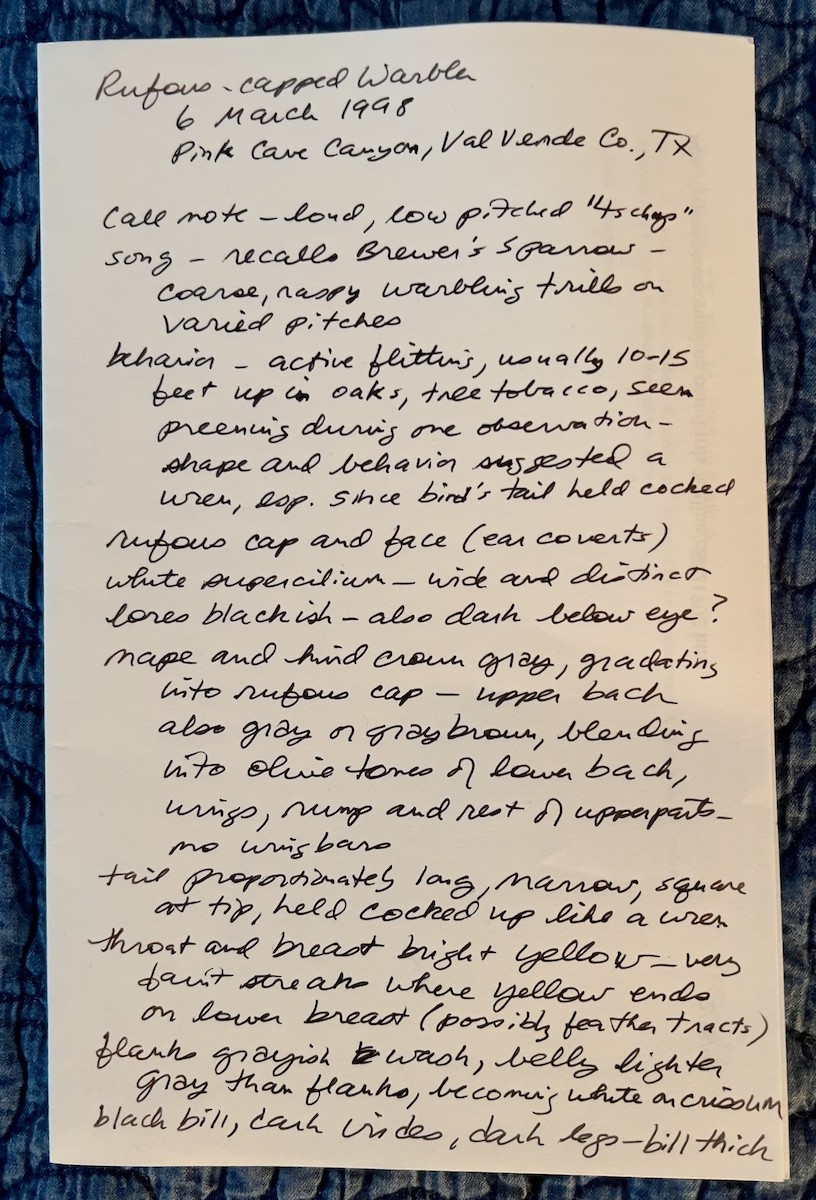 Rufous-capped Warbler
6 March 1998
Pink Cave Canyon, Val Verde Co., TX
Call note – loud, low pitched "tschp"
song – recalls Brewer's Sparrow –
coarse, raspy warbling trills on
varied pitches
behavior – active flitting, usually 10-15
feet up in oaks, tree tobacco, seen
preening during one observation –
shape and behavior suggested a
wren, esp. since bird's tail held cocked
rufous cap and face (ear coverts)
white supercilium – wide and distinct
lores blackish – also dark below eye?
nape and hind crown gray, gradating
into rufous cap – upper back
also gray or gray brown, blending
into olive tones of lower back,
wings, rump and rest of upperparts –
no wingbars
tail proportionately long, narrow, square
at tip, held cocked up like a wren
throat and breast bright yellow – very
faint streaks where yellow ends
on lower breast (possibly feather tracts)
flanks grayish wash, belly lighter
gray than flanks, becoming white on crissum
black bill, dark irides, dark legs – bill thick